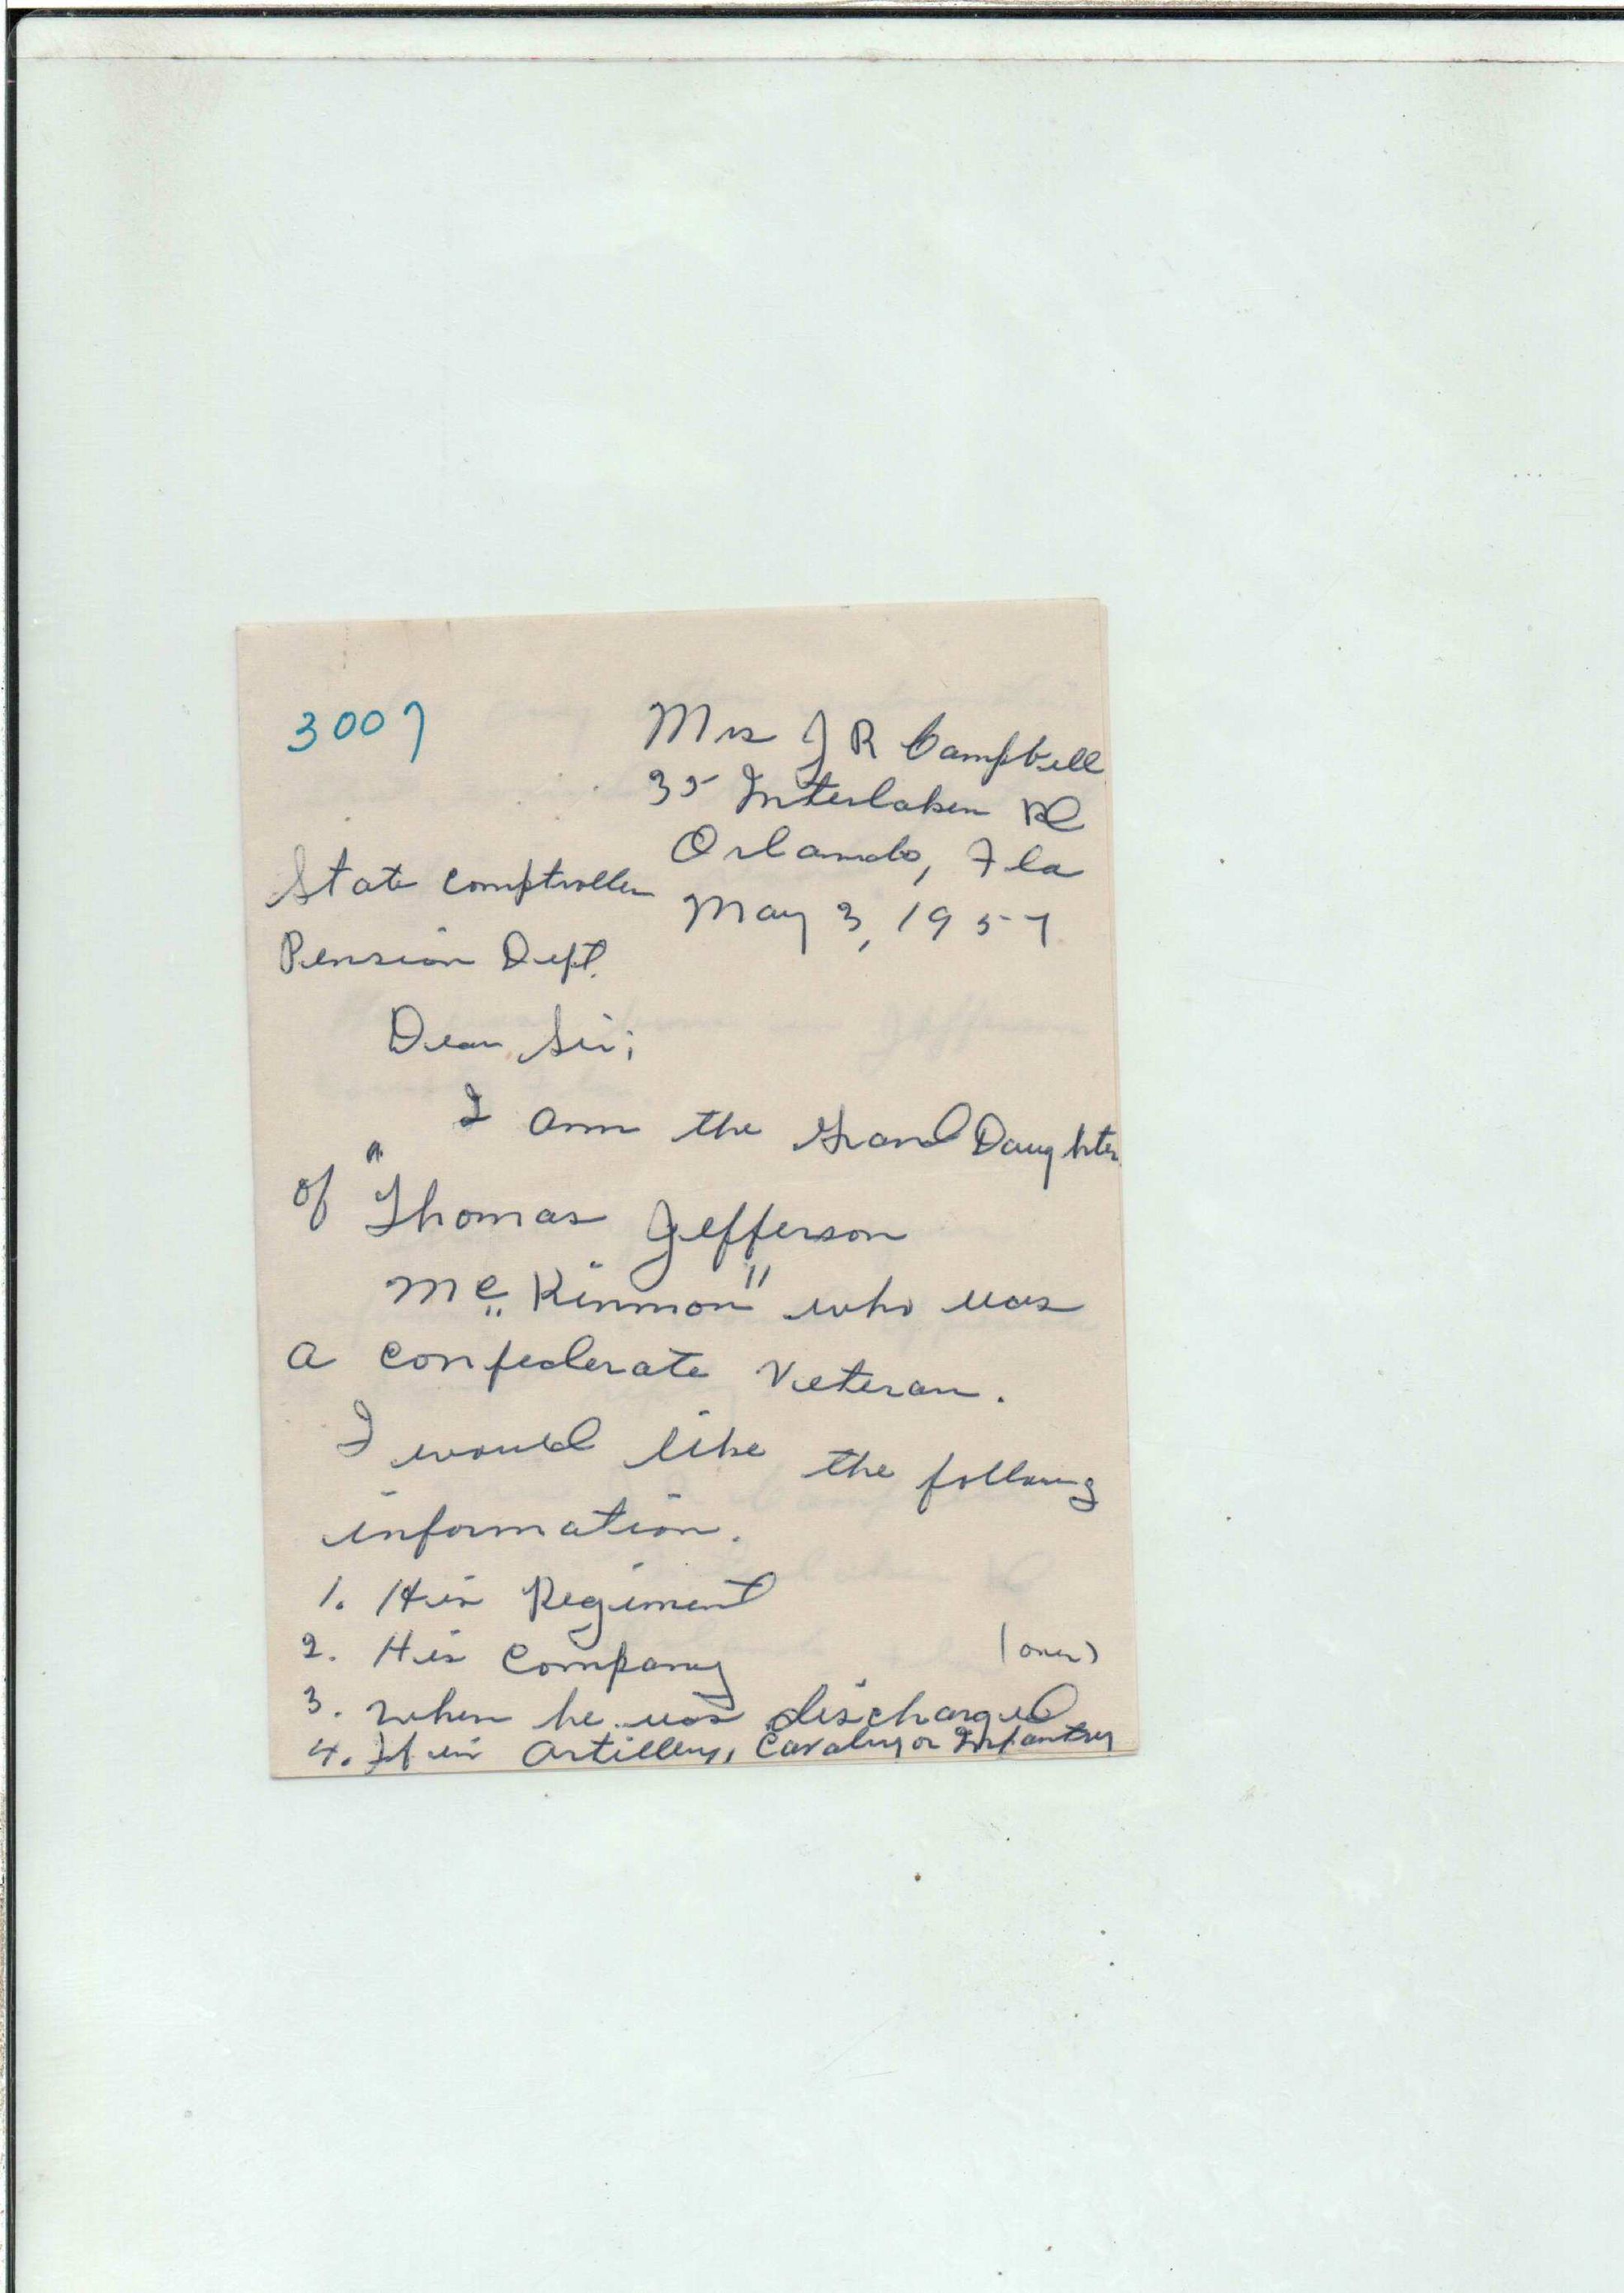 3007
Mrs J R Campbell
35 Interlaken Rd
Orlando, Fla
May 3, 1957
State Comptroller
Pension Dept.
Dear Sir;
I am the Grand Daughter
of "Thomas Jefferson
Mc Kinnon" who was
a Confederate Veteran.
I would like the following
information.
1. His Regiment
2. His Company
(over)
3. When he was discharged
4. If in Artillery, Cavalry or Infantry